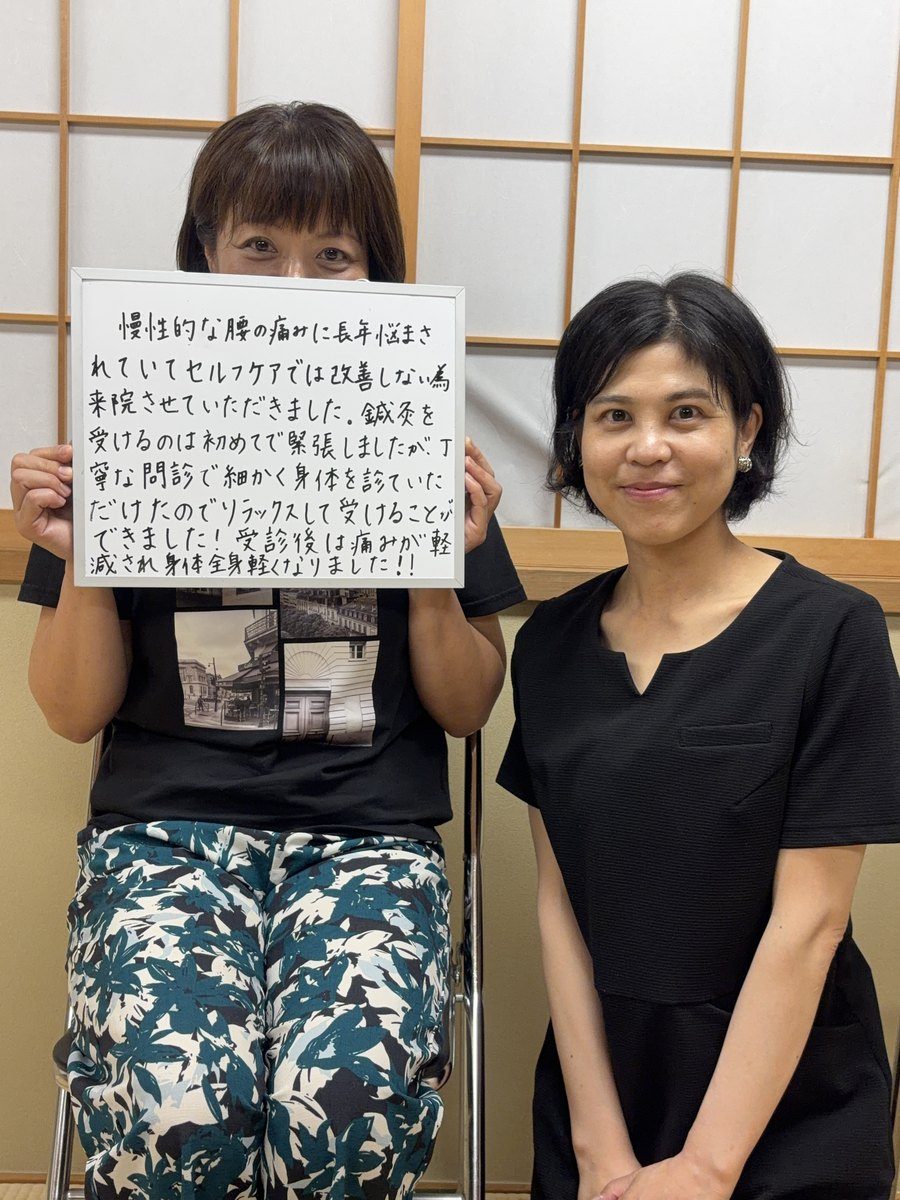 慢性的な腰の痛みに長年悩まさ
れていてセルフケアでは改善しない為
来院させていただきました。鍼灸を
受けるのは初めてで緊張しましたが、丁
寧な問診で細かく身体を診ていた
だけたのでリラックスして受けることが
できました!受診後は痛みが軽
減され身体全身軽くなりました!!